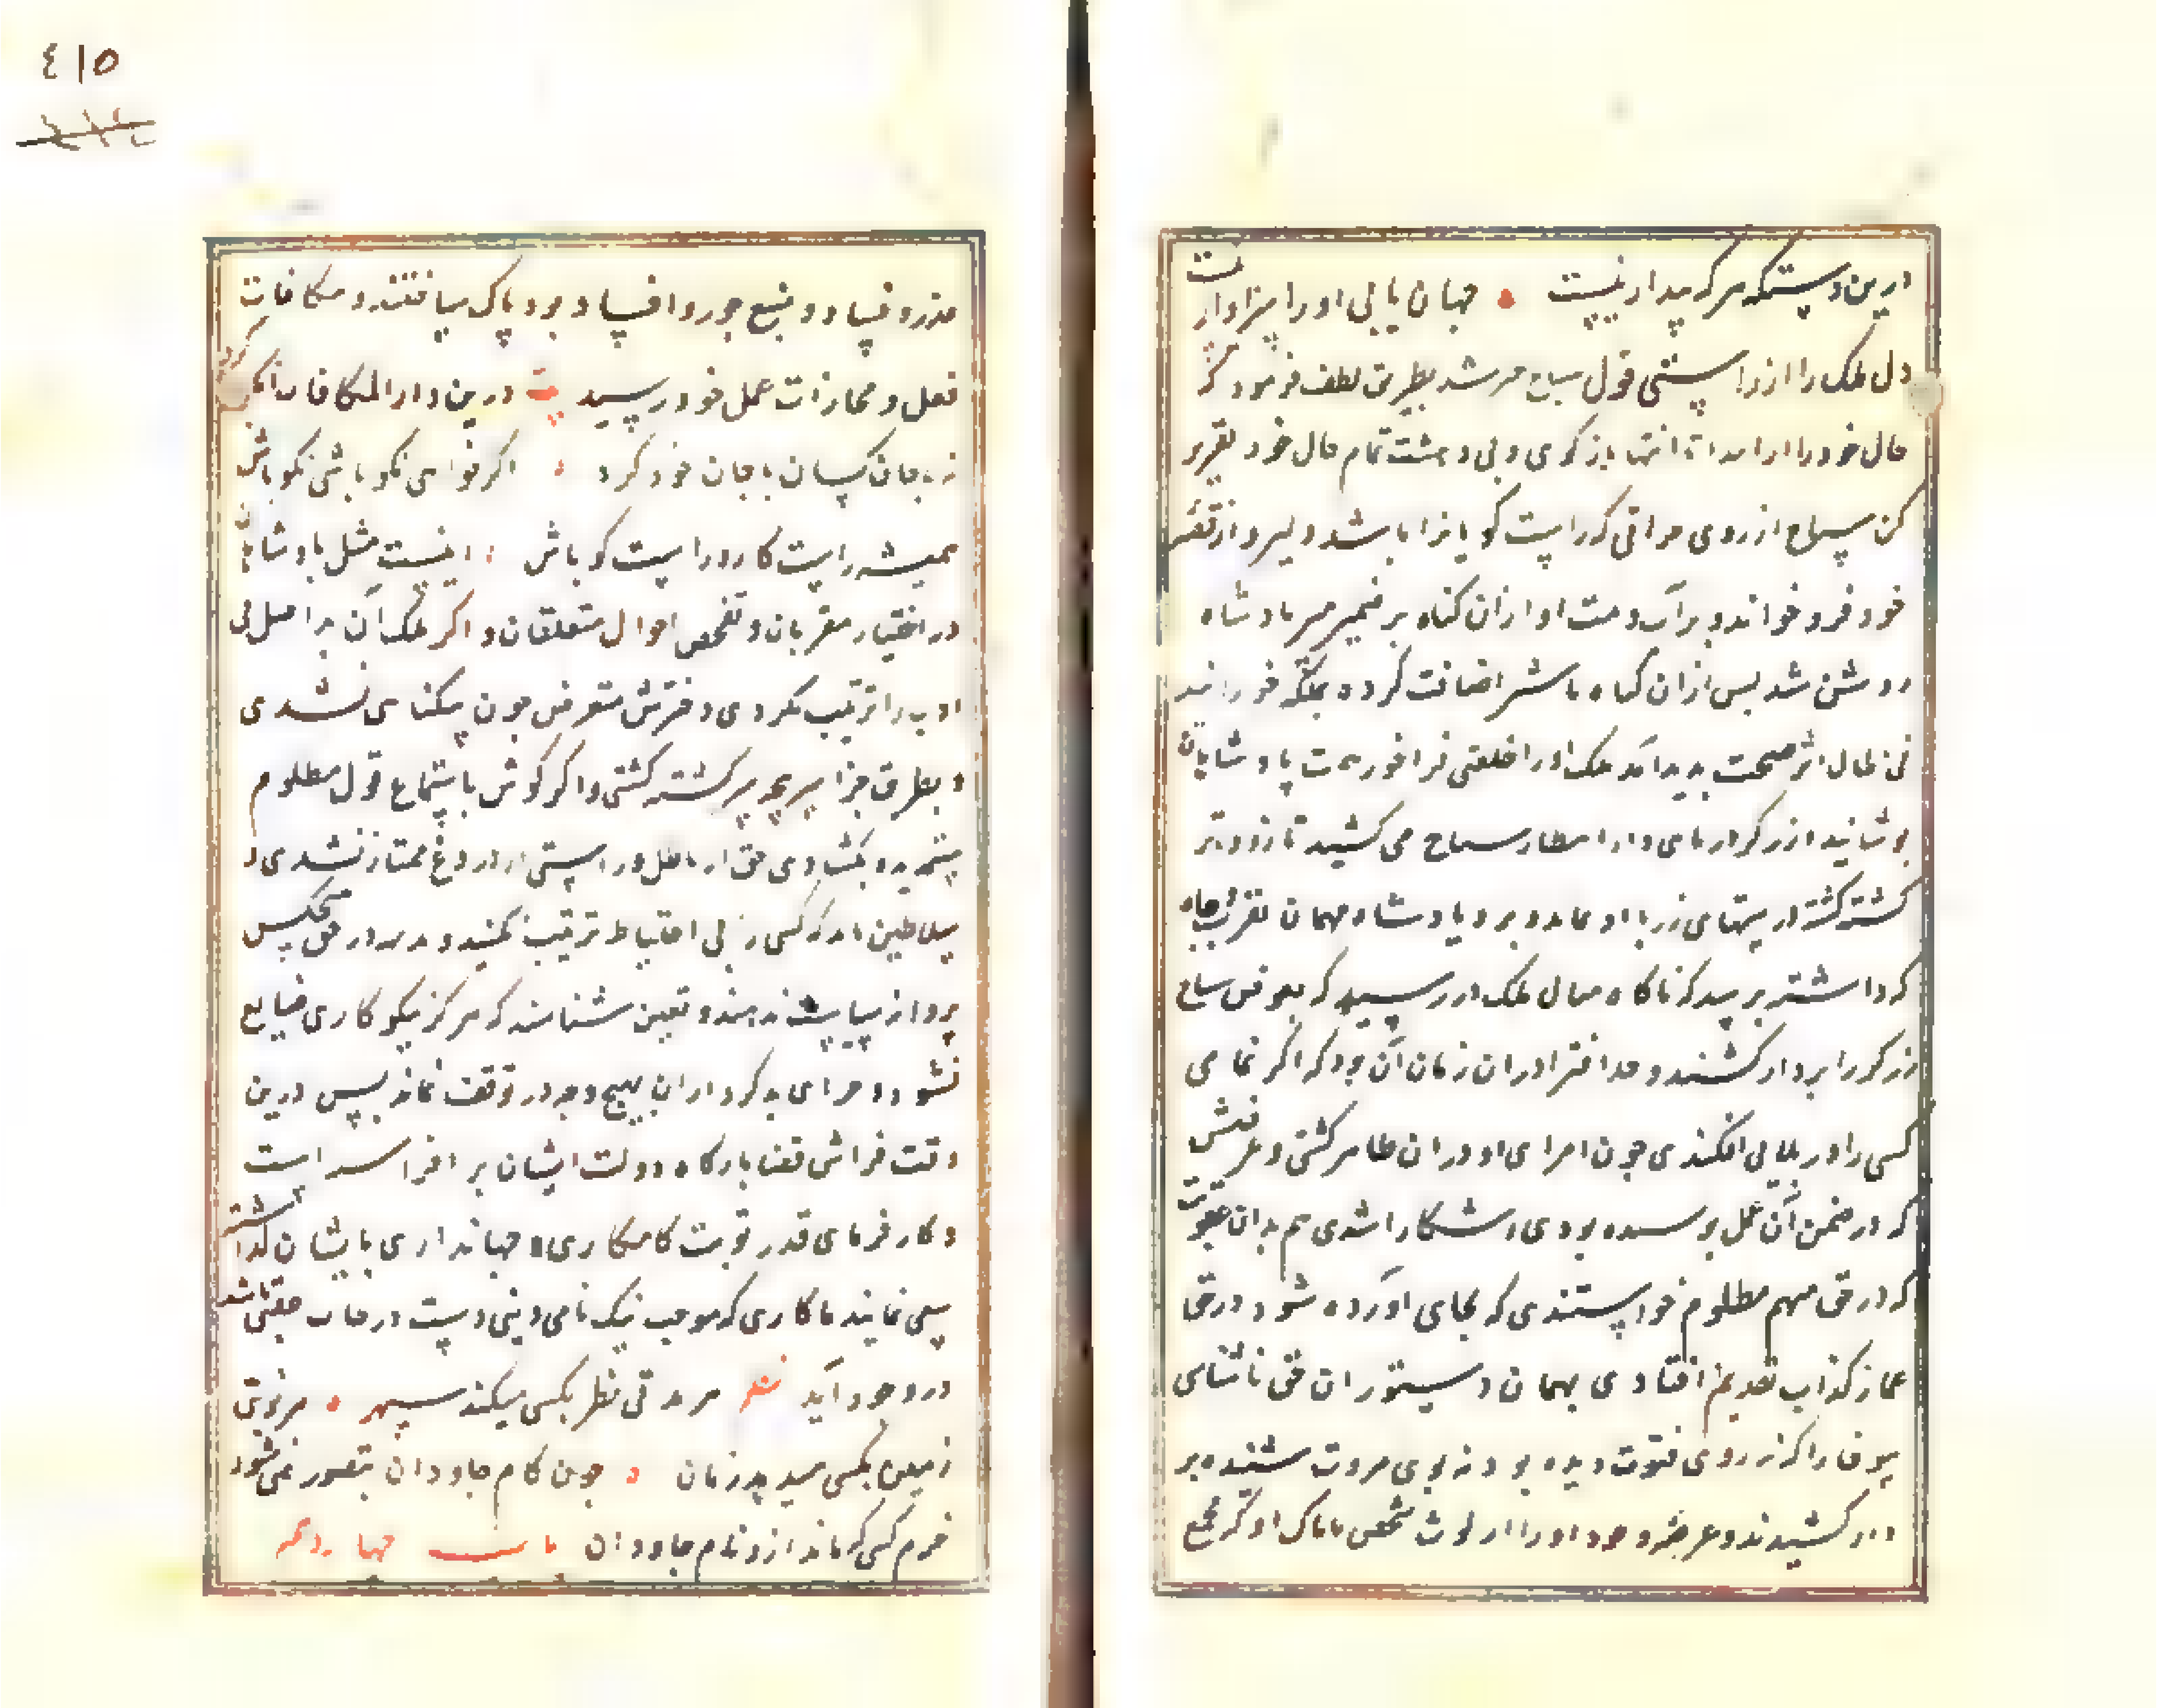 ازین دستکه مرکه بیدار نیست جهان بابی او را سزاوار نیست
دل ملک را از راستی قول سیاح مرشد بطریق لطف فرمود که
حال خود را از ابتدا تا انتها بازگوی و بی دهشت تمام حال خود تقریر
کن سیاح از روی صدقی که راست گویانرا باشد دلیر وار قصه
خود فرو خواند و برأت ذمت او ازان کناه بر ضمیر منیر پادشاه
روشن شد پس ازان کیاه با شیر اضافت کرده بملکزاده خورانیدند
فی الحال اثر صحت پدید آمد ملک او را خلعتی فراخور همت پادشاهان
پوشانید و زرکر از پای دار انتظار سیاح می کشید تا زودتر
کشته کشته درستهای زر با او بماند و برد پادشاه همان تقرب
که داشته برسد که ناکاه مثال ملک در رسید که بعوض سیاح
زرکر را بردار کشند و حد افترا در ان زمان آن بود که اکر نمامی
کسی را در بلایی افکندی چون افترای او در ان ظاهر کشتی و غرضش
که در ضمن آن عمل پوشیده بودی آشکارا شدی هم بدان عقوبت
که در حق متهم مظلوم خواستندی که بجای آورده شود در حق
غماز کذاب تقدیم افتادی بهمان دستور ان حق ناشناس
بیوفا را که نه روی فتوت دیده بود نه بوی مروت شنیده بر
دار کشیدند و عرصه وجود او را از لوث شخص ناپاک او که مجمع
٤١٥
غدر و فساد و منبع جور و افساد بود پاک سیاختند و مکافات
فعل و مجازات عمل خود رسید بیت درین دار المکافات آنکه بد کرد
نه با جان کسان با جان خود کرد اکر خواهی نکو باشی نکو باش
همیشه راست کار و راست کو باش اینست مثل پادشاهان
در اختیار مقربان و تفحص احوال متعلقان و اکر ملک آن بد اصل بی
ادب را تربیت نکردی دخترش متعرض خون بیکناهی نشدی
و بطریق جزا کشته نکشتی و اکر کوش باستماع قول مظلوم
ستمدیده نکشادی حق از باطل و راستی از دروغ ممتاز نشدی و
سلاطین باید که کسی را بی احتیاط تربیت نکنند و در حق هیچکس
پروانه سیاست ندهند و یقین شناسند که هرکز نیکوکاری ضایع
نشود و جزای بدکرداران بهیچ وجه در توقف نماند پس درین
وقت فراش قضا بارکاه دولت ایشان بر افراشته است
و کارفرمای قدر نوبت کامکاری و جهانداری بایشان کذاشته
سعی نمایند تا کاری که موجب نیک نامی دنیی و سبب درجات عقبی باشد
در وجود آید شعر هر مدتی نظر بکسی میکند سپهر هر نوبتی
زمین بکسی میسپرد زمان چون کام جاودان متصور نمی شود
خرم کسی که ماند ازو نام جاودان باب چهاردهم